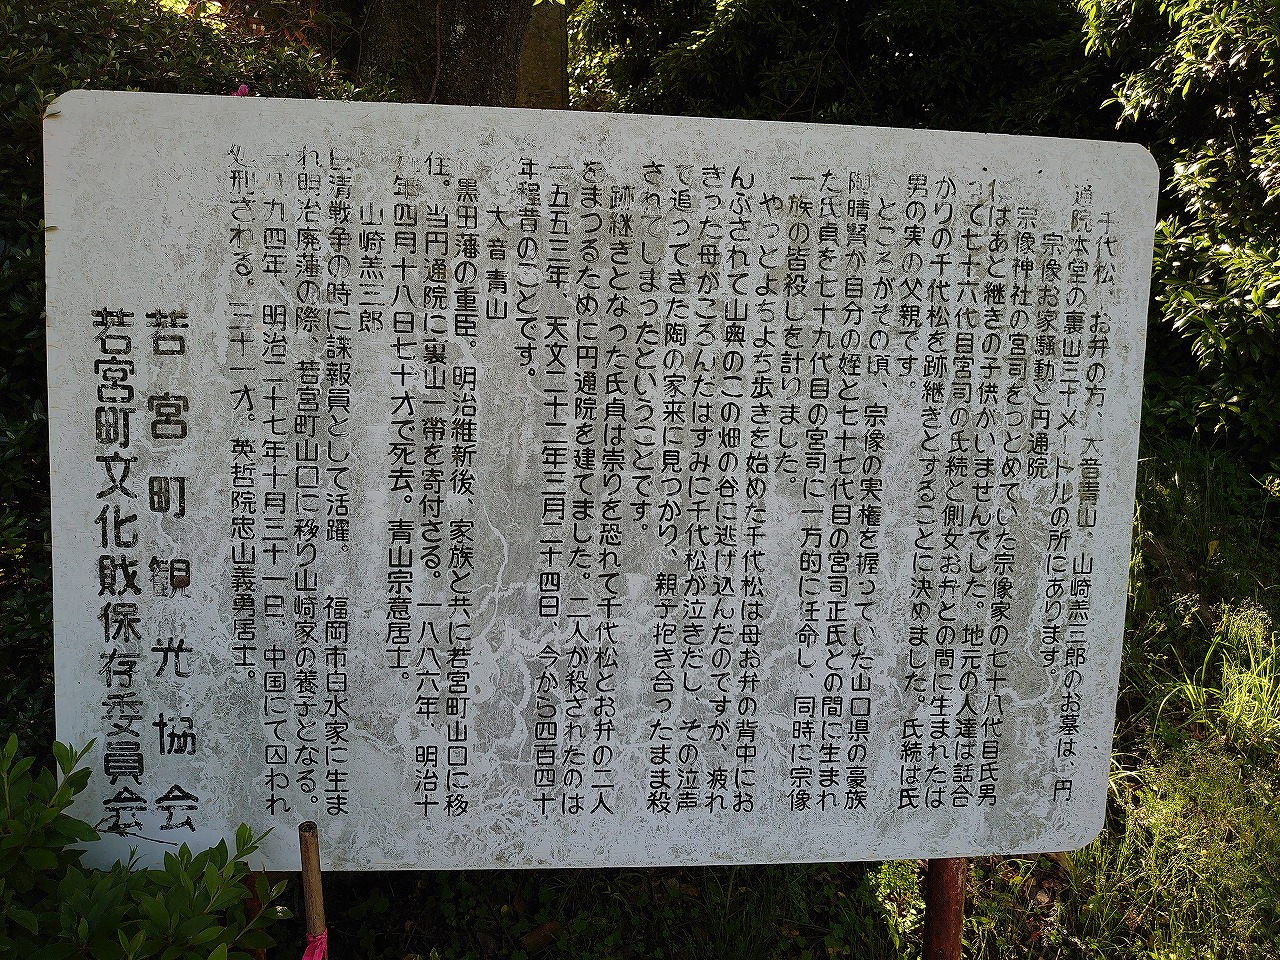 千代松、お弁の方、大音青山。山崎羔三郎のお墓は、円
通院本堂の裏山三十メートルの所にあります。
宗像お家騒動と円通院
宗像神社の宮司をつとめていた宗像家の七十八代目氏男
にはあと継ぎの子供がいませんでした。地元の人達は話合
って七十六代目宮司の氏続と側女お弁との間に生まれたば
かりの千代松を跡継ぎとすることに決めました。氏続は氏
男の実の父親です。
ところがその頃、宗像の実権を握っていた山口県の豪族
陶晴賢が自分の姪と七十七代目の宮司正氏との間に生まれ
た氏貞を七十九代目の宮司に一方的に任命し、同時に宗像
一族の皆殺しを計りました。
やっとよちよち歩きを始めた千代松は母お弁の背中にお
んぶされて山奥のこの畑の谷に逃げ込んだのですが、疲れ
きった母がころんだはずみに千代松が泣きだし、その泣声
で追ってきた陶の家来に見つかり、親子抱き合ったまま殺
されてしまったということです。
跡継ぎとなった氏貞は祟りを恐れて千代松とお弁の二人
をまつるために円通院を建てました。二人が殺されたのは
一五五三年、天文二十二年三月二十四日、今から四百四十
年程昔のことです。
大音青山
黒田藩の重臣。明治維新後、家族と共に若宮町山口に移
住。当円通院に裏山一帯を寄付さる。一八八六年、明治十
九年四月十八日七十才で死去。青山宗意居士。
山崎羔三郎
日清戦争の時に諜報員として活躍。福岡市白水家に生ま
れ明治廃藩の際、若宮町山口に移り山崎家の養子となる。
一八九四年、明治二十七年十月三十一日、中国にて囚われ
処刑される。三十一才。英哲院忠山義勇居士。
若宮町観光協会
若宮町文化財保存委員会